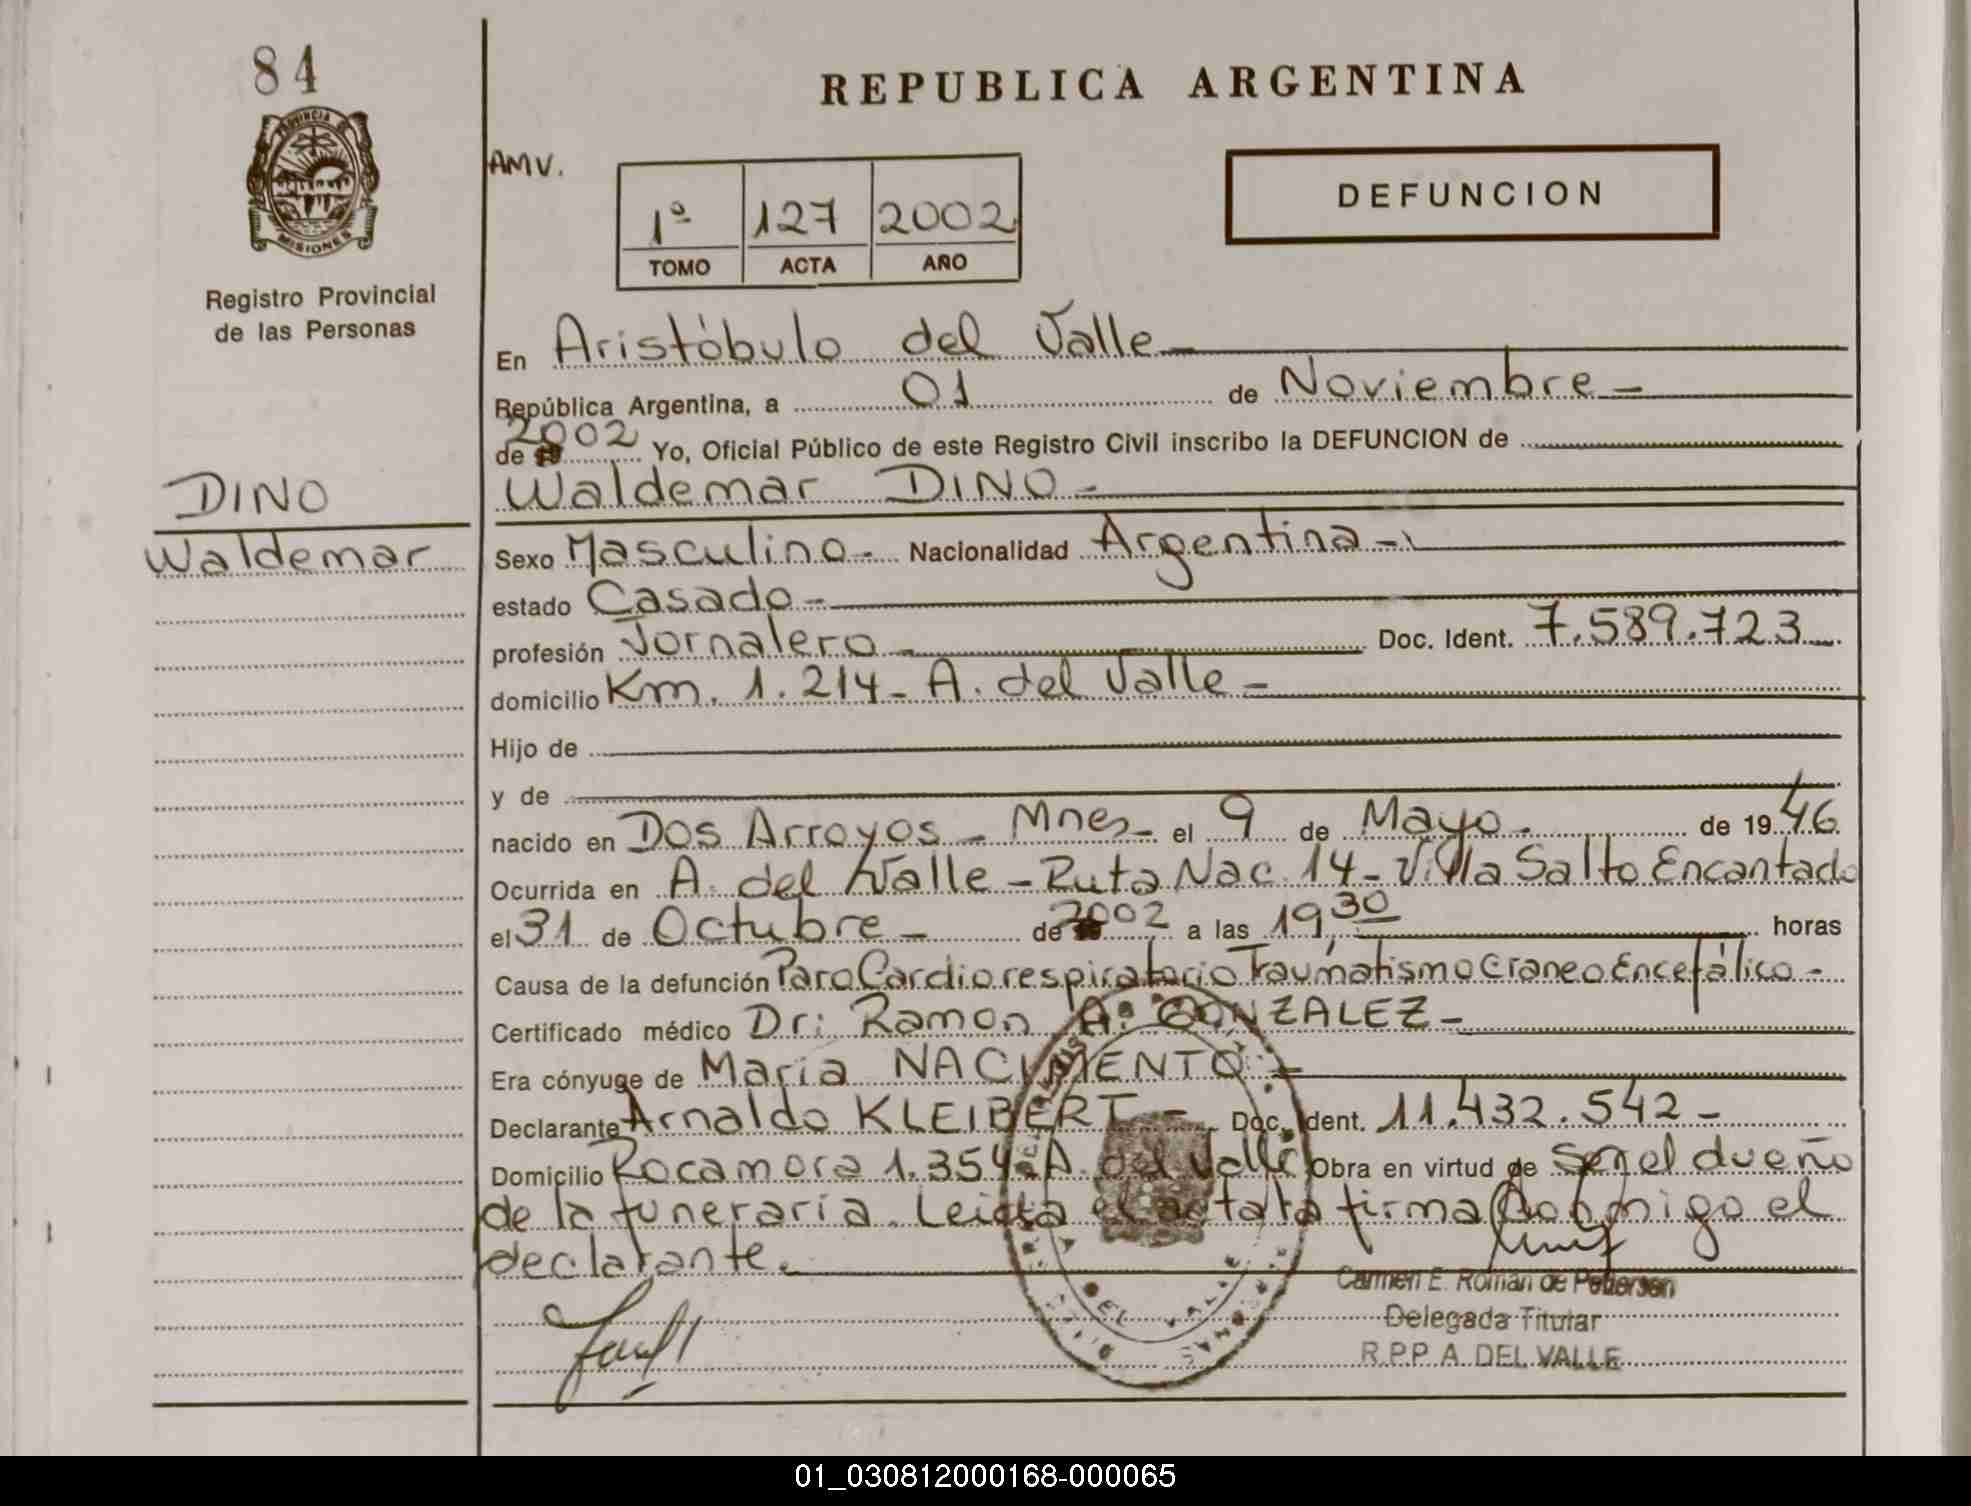 84
PROVINCIA DE
MISIONES
Registro Provincial
de las Personas
DINO
Waldemar
REPUBLICA ARGENTINA
AMV.
1º 127 2002
TOMO ACTA AÑO
DEFUNCION
En Aristóbulo del Valle-
República Argentina, a 01 de Noviembre-
de 2002 Yo, Oficial Público de este Registro Civil inscribo la DEFUNCION de
Waldemar DINO-
Sexo Masculino- Nacionalidad Argentina-
estado Casado-
profesión Jornalero- Doc. Ident. 7.589.723
domicilio Km. 1.214- A. del Valle-
Hijo de
y de
nacido en Dos Arroyos- Mnes- el 9 de Mayo- de 1946
Ocurrida en A. del Valle-Ruta Nac. 14-Villa Salto Encantado
el 31 de Octubre- de 2002 a las 19,30 horas
Causa de la defunción Paro Cardiorespiratorio Traumatismo Craneo Encefálico-
Certificado médico Dr: Ramon A. GONZALEZ-
Era cónyuge de Maria NACIMENTO-
Declarante Arnaldo KLEIBERT- Doc. Ident. 11.432.542-
Domicilio Rocamora 1.354-A. del Valle Obra en virtud de Ser el dueño
de la funeraria. Leida el acta la firma conmigo el
declarante.
Carmen E. Román de Pedersen
Delegada Titular
R.P.P. A. DEL VALLE
01_030812000168-000065